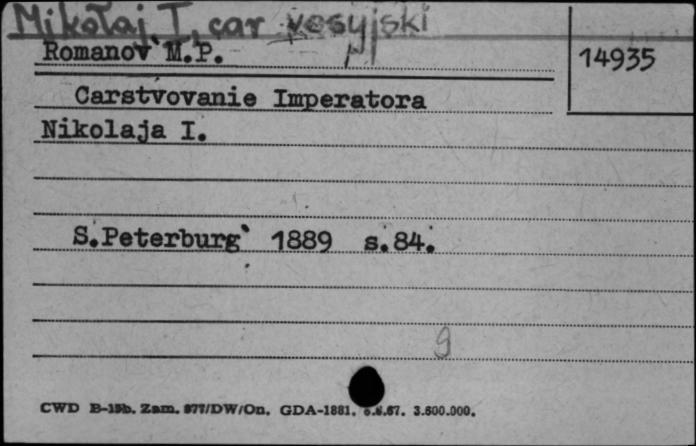 Mikołaj I, car rosyjski
Romanov M.P.
14935
Carstvovanie Imperatora
Nikolaja I.
S.Peterburg` 1889 s.84.
9
CWD B-15b. Zam. 877/DW/On. GDA-1881. 6.6.67. 3.600.000.